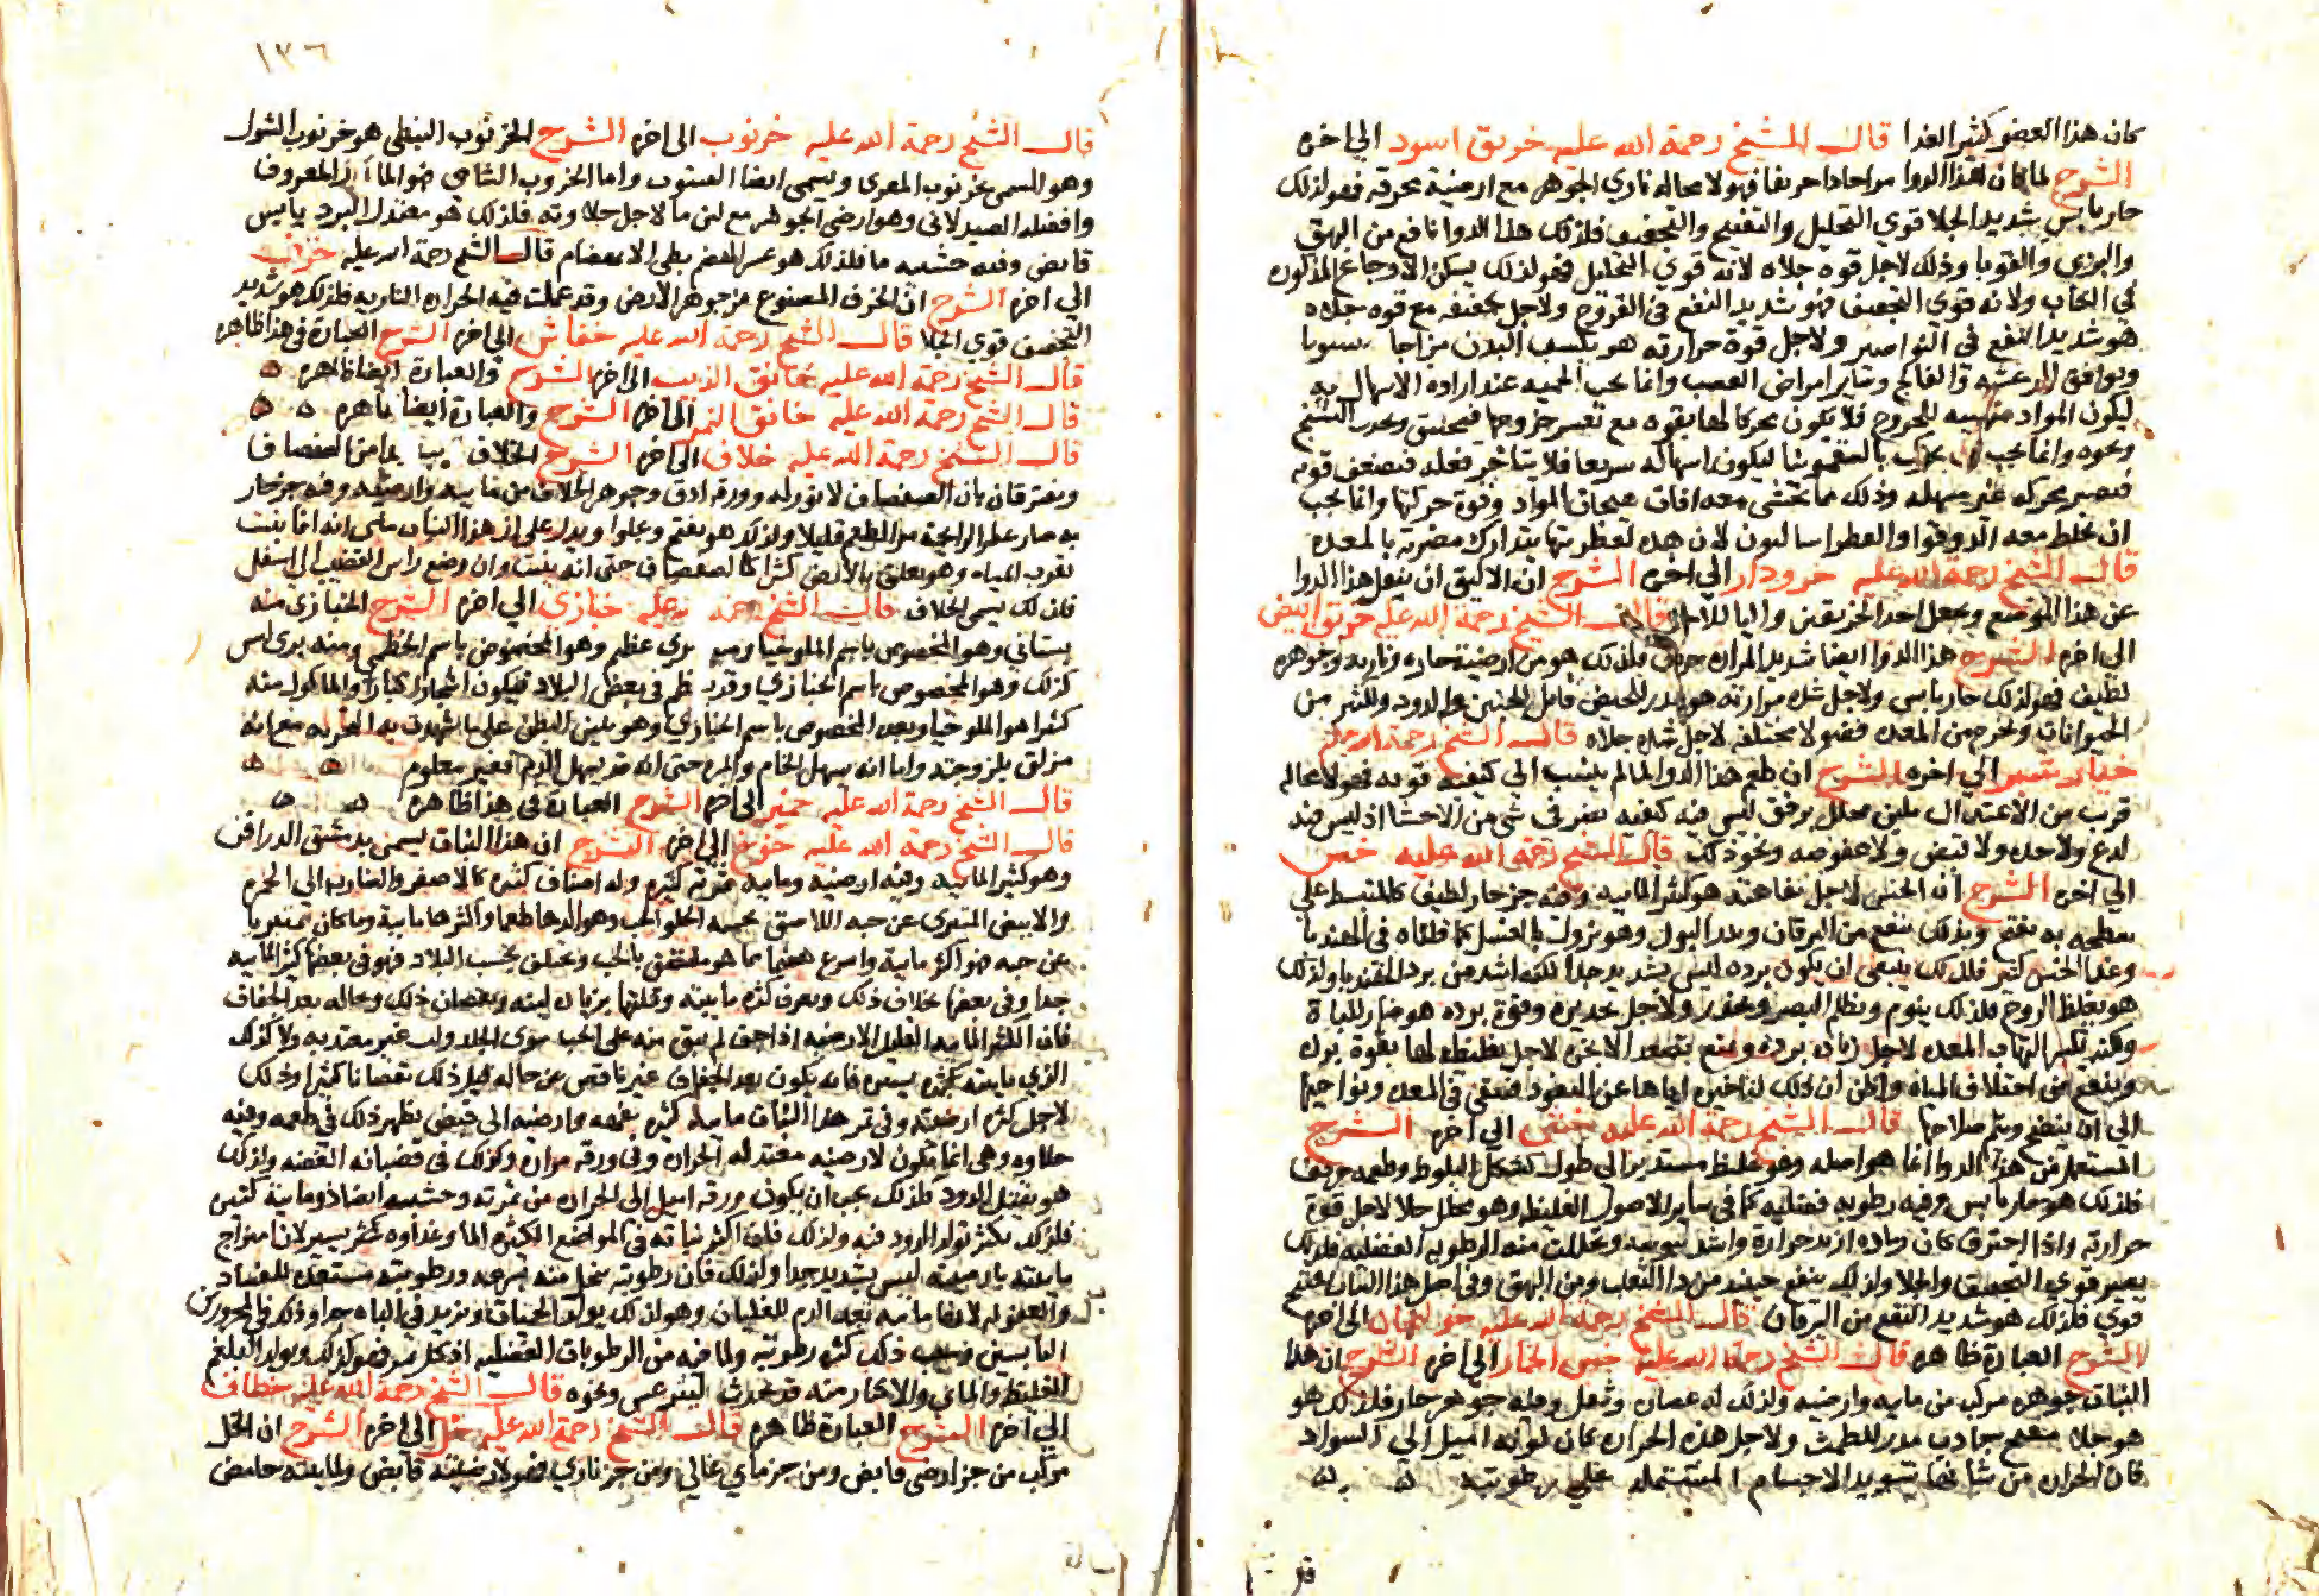 كان هذا العضو كثير الغذا قال الشيخ رحمة الله عليه خربق اسود الي اخره
الشرح لما كان هذا الدوا مرا حادا حريفا فهو لا محاله ناري الجوهر مع ارضية محرقه فهو لذلك
حار يابس شديد الجلا قوي التحليل والتفتيح والتجفيف فلذلك هذا الدوا نافع من البهق
والبرص والقوبا وذلك لاجل قوه جلاه لانه قوي التحليل فهو لذلك يسكن الاوجاع المذكوره
في الكتاب ولانه قوي التجفيف فهو شديد النفع في القروح ولاجل تجفيفه مع قوه جلاه
هو شديد النفع في النواصير ولاجل قوة حرارته هو يكسب البدن مزاجا
ويوافق الرعشه والفالج وساير امراض العصب وانما يجب الحميه عند اراده الاسهال به
ليكون المواد متهييه للخروج فلا يكون محركا لها بقوه مع تعسر خروجها فيحدث التشنج
ونحوه وانما يجب بالسقمونيا ليكون اسهاله سريعا فلا يتاخر فعله فتضعف قوته
فيصير محركه غير مسهله وذلك مما يخشى معه افات هيجان المواد وقوة حركتها وانما يجب
ان يخلط معه الدوقوا والفطراساليون لان هذه لعطريتها يتدارك مضرته بالمعده
قال الشيخ رحمة الله عليه خرودار الي اخره الشرح ان الاليق ان ينقل هذا الدوا
عن هذا الموضع ويجعل احد الخربقين واليا للاخر قال الشيخ رحمة الله عليه خربق ابيض
الي اخره الشرح هذا الدوا ايضا شديد المراره فلذلك هو من ارضية حاره وناريه وجوهره
لطيف فهو لذلك حار يابس ولاجل شده مرارته هو يدر للحيض قاتل للجنين والدود وللكثير من
الحيوانات ويخرج من المعده فضولا مختلفه لاجل شده جلاه قال الشيخ رحمة الله عليه
خيار شنبر الي اخره الشرح ان طعم هذا الدوا لما لم ينسب الي كيفيه قويه فهو لا محاله
قرب من الاعتدال ملين محلل برفق ليس فيه كيفيه يضر في شي من الاحشا اذ ليس فيه
لدع ولا حده ولا قبض ولا عفوصه ونحو ذلك قال الشيخ رحمة الله عليه خس
الي اخره الشرح ان الخس لاجل تفاهته هو كثير المائيه وفيه جز حار لطيف كالمنبسط علي
سطحه به يفتح وبذلك ينفع من اليرقان ويدر البول وهو يزول بالغسل كما قلناه في الهندبا
وغذا الخس كثير فلذلك ينبغي ان يكون برده ليس بشديد جدا لكنه اشد من برد الهندبا ولذلك
هو يغلظ الروح فلذلك ينوم ويظلم البصر ويخدر ولاجل تخديره وقوة برده هو ضار للباة
وهو يسكن التهاب المعده لاجل زياده برده ويمنع تصعد الابخره لاجل تغليظه لها بقوة برده
وينفع من اختلاف المياه واظن ان ذلك لتاخيره اياها عن النفوذ فتبقي في المعده ونواحيها
الي ان ينضج ويتم صلاحها قال الشيخ رحمة الله عليه خنثى الي اخره الشرح
المستعمل من هذا الدوا انما هو اصله وهو غليظ مستدير الي طول كشكل البلوط وطعمه حريف
فلذلك هو حار يابس وفيه رطوبه فضليه كما في ساير الاصول الغليظه وهو محلل جلا لاجل قوة
حرارته واذا احترق كان رماده ازيد حرارة واشد يبوسه وتحللت منه الرطوبه الفضليه فلذلك
يصير قوي التجفيف والجلا ولذلك ينفع حينيذ من دا الثعلب ومن البهق وفي اصل هذا النبات تفتيح
قوي فلذلك هو شديد النفع من اليرقان قال الشيخ رحمة الله عليه خولنجان الي اخره
الشرح العبارة ظاهره قال الشيخ رحمة الله عليه خس الحمار الي اخره الشرح ان هذا
النبات جوهره مركب من مايه وارضيه ولذلك له عصاره وثفل وفيه جوهر حار فلذلك هو
هو جلا مفتح جاذب مدر للطمث ولاجل هذه الحراره كان لونه اميل الي السواد
فان الحراره من شانها تسويد الاجسام المشتمله علي رطوبته
١٧٦
قال الشيخ رحمة الله عليه خرنوب الي اخره الشرح الخرنوب النبطي هو خرنوب الشوك
وهو المسمى بخرنوب المعزى ويسمى ايضا الينبوت واما الخروب الشامي فهو المعروف
وافضله الصيدلاني وهو ارضي الجوهر مع لين ما لاجل حلاوته فلذلك هو معتدل البرد يابس
قابض وفيه خشبيه ما فلذلك هو عسر الهضم بطي الانهضام قال الشيخ رحمة الله عليه خزف
الي اخره الشرح ان الخزف المصنوع من جوهر الارض وقد عملت فيه الحراره الناريه فلذلك هو شديد
التجفيف قوي الجلا قال الشيخ رحمة الله عليه خفاش الي اخره الشرح العبارة في هذا ظاهره
قال الشيخ رحمة الله عليه خانق الذيب الي اخره الشرح والعبارة ايضا ظاهره
قال الشيخ رحمة الله عليه خانق النمر الي اخره الشرح والعبارة ايضا ظاهره
قال الشيخ رحمة الله عليه خلاف الي اخره الشرح الخلاف من الصفصاف
ويفترقان بان الصفصاف لا نور له وورقه ادق وجوهر الخلاف من مايية وارضيه وفيه جز حار
به صار عطر الرايحة مر الطعم قليلا ولذلك هو يفتح ويجلوا ويدل على ان هذا النبات مائي انه انما ينبت
بقرب المياه وهو يعلق بالارض كثيرا كالصفصاف حتى انه ينبت وان وضع راس القضيب الي اسفل
فلذلك يسمى الخلاف قال الشيخ رحمة الله عليه خبازى الي اخره الشرح الخبازى منه
بستاني وهو المخصوص باسم الملوخيا ومنه بري عظيم وهو المخصوص باسم الخطمي ومنه بري ليس
كذلك وهو المخصوص باسم الخبازي وقد يعظم في بعض البلاد فيكون اشجارا كبارا والماكول منه
كثيرا هو الملوخيا وبعده المخصوص باسم الخبازي وهو يلين البطن على ما شهدت به التجربه مع انه
مزلق بلزوجته واما انه يسهل الخام والمره حتى انه قد يسهل الدم فغير معلوم
قال الشيخ رحمة الله عليه خمير الي اخره الشرح العبارة في هذا ظاهره
قال الشيخ رحمة الله عليه خوخ الي اخره الشرح ان هذا النبات يسمى بدمشق الدراقن
وهو كثير المائيه وفيه ارضية ومائيه ثمرته كثيره وله اصناف كثيره كالاصفر والضارب الي الحمره
والابيض المتبري عن حبه اللاصق لحمه الحلو الحب وهو الذها طعما واكثرها مايية وما كان متبريا
عن حبه فهو اكثر مايية واسرع هضما مما هو ملتصق بالحب ويختلف بحسب البلاد فهو في بعضها كثير المائيه
جدا وفي بعضها بخلاف ذلك ويعرف كثره ماييته وقلتها بزياده لينه ونقصان ذلك وبحاله بعد الجفاف
فان الكثير المائيه القليل الارضيه اذا جف لم يبق منه على الحب سوى الجلد ولب غير معتد به ولا كذلك
الذي ماييته يسيره فانه يكون بعد الجفاف غير ناقص عن حاله قبل ذلك نقصانا كثيرا وذلك
لاجل كثره ارضيته وفي ثمر هذا النبات مائيه كثيره وارضيه الي قبض يظهر ذلك في طعمه وفيه
حلاوه وهي انما تكون لارضيه معتدله الحراره وفي ورقه مراره وكذلك في قضبانه الغضه ولذلك
هو يقتل الدود فلذلك يجب ان يكون ورقه اميل الي الحراره من ثمرته وخشبه ايضا ذو مايية كثيره
فلذلك يكثر تولد الدود فيه ولذلك فان اكثر نباته في المواضع الكثيره الما وغذاوه يسير لان امتزاج
ماييته بارضيته ليس بشديد جدا ولذلك فان رطوبته تتحلل منه بسرعه ورطوبته مستعده للفساد
والعفونه لانها مائيه تعد الدم للغليان وهو لذلك يولد الحميات ويزيد في الباه جدا وذلك في المحرورين
اليابسين وسبب ذلك كثره رطوبته ولما فيه من الرطوبات الفضليه اذ كل ثمر فهو كذلك ويولد البلغم
الغليظ والمائي والاكثار منه قد يحدث ليثرغس ونحوه قال الشيخ رحمة الله عليه خطاف
الي اخره الشرح العبارة ظاهره قال الشيخ رحمة الله عليه خل الي اخره الشرح ان الخل
مركب من جز ارضي قابض ومن جز مايي غالي ومن جز ناري فهو لارضيته قابض ولماييته حامض